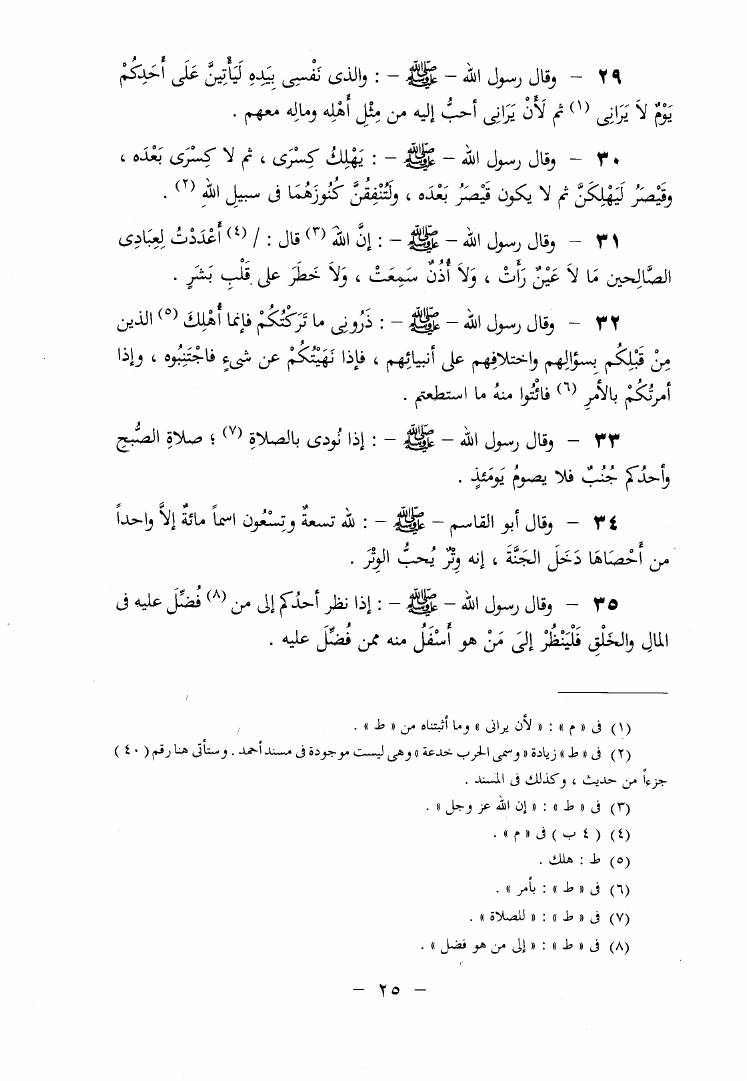 ٢٩ – وقال رسول الله – ﷺ – : والذى نَفْسِى بِيَدِهِ لَيَأْتِيَنَّ عَلَى أَحَدِكُمْ
يَوْمٌ لاَ يَرَانِى (١) ثم لَأَنْ يَرَانِى أحبُّ إليه من مِثْلِ أَهْلِه ومالِه معهم .
٣٠ – وقال رسول الله – ﷺ – : يَهْلِكُ كِسْرَى ، ثم لا كِسْرَى بَعْدَه ،
وقَيْصَرُ لَيَهْلِكَنَّ ثم لا يكون قَيْصَرُ بَعْدَه ، ولَتُنْفِقُنَّ كُنُوزَهُمَا فى سبيل اللهِ (٢) .
٣١ – وقال رسول الله – ﷺ – : إنَّ اللهَ (٣) قال : / (٤) أَعْدَدْتُ لِعِبَادِى
الصَّالِحين مَا لاَ عَيْنٌ رَأَتْ ، وَلاَ أُذُنٌ سَمِعَتْ ، وَلاَ خَطَرَ على قَلْبِ بَشَرٍ .
٣٢ – وقال رسول الله – ﷺ – : ذَرُونِى ما تَرَكْتُكُمْ فإنما أُهْلِكَ (٥) الذين
مِنْ قَبْلِكُم بِسؤالِهم واختلافِهم على أنبيائِهم ، فإذا نَهَيْتُكُمْ عن شىءٍ فاجْتَنِبُوه ، وإذا
أمرتُكُمْ بالأمرِ (٦) فائْتُوا منهُ ما استطعتم .
٣٣ – وقال رسول الله – ﷺ – : إذا نُودى بالصلاةِ (٧) ؛ صلاةِ الصُّبحِ
وأحدُكم جُنُبٌ فلا يصومُ يَومَئذٍ .
٣٤ – وقال أبو القاسم – ﷺ – : لله تسعةٌ وتِسْعُون اسماً مائةٌ إلاَّ واحداً
من أَحْصَاهَا دَخَلَ الجَنَّةَ ، إنه وِتْرٌ يُحبُّ الوِتْرَ .
٣٥ – وقال رسول الله – ﷺ – : إذا نظر أحدُكم إلى من (٨) فُضِّلَ عليه فى
المالِ والخَلْقِ فَلْيَنْظُرْ إلَى مَنْ هو أَسْفَلُ منه ممن فُضِّلَ عليه .
(١) فى « م » : « لأن يرانى » وما أثبتناه من « ط » .
(٢) فى « ط » زيادة « وسمى الحرب خدعة » وهى ليست موجودة فى مسند أحمد . وستأتى هنا رقم ( ٤٠ )
جزءاً من حديث ، وكذلك فى المسند .
(٣) فى « ط » : « إن الله عز وجل » .
(٤) ( ٤ ب ) فى « م » .
(٥) ط : هلك .
(٦) فى « ط » : بأمر » .
(٧) فى « ط » : « للصلاة » .
(٨) فى « ط » : « إلى من هو فضل » .
– ٢٥ –